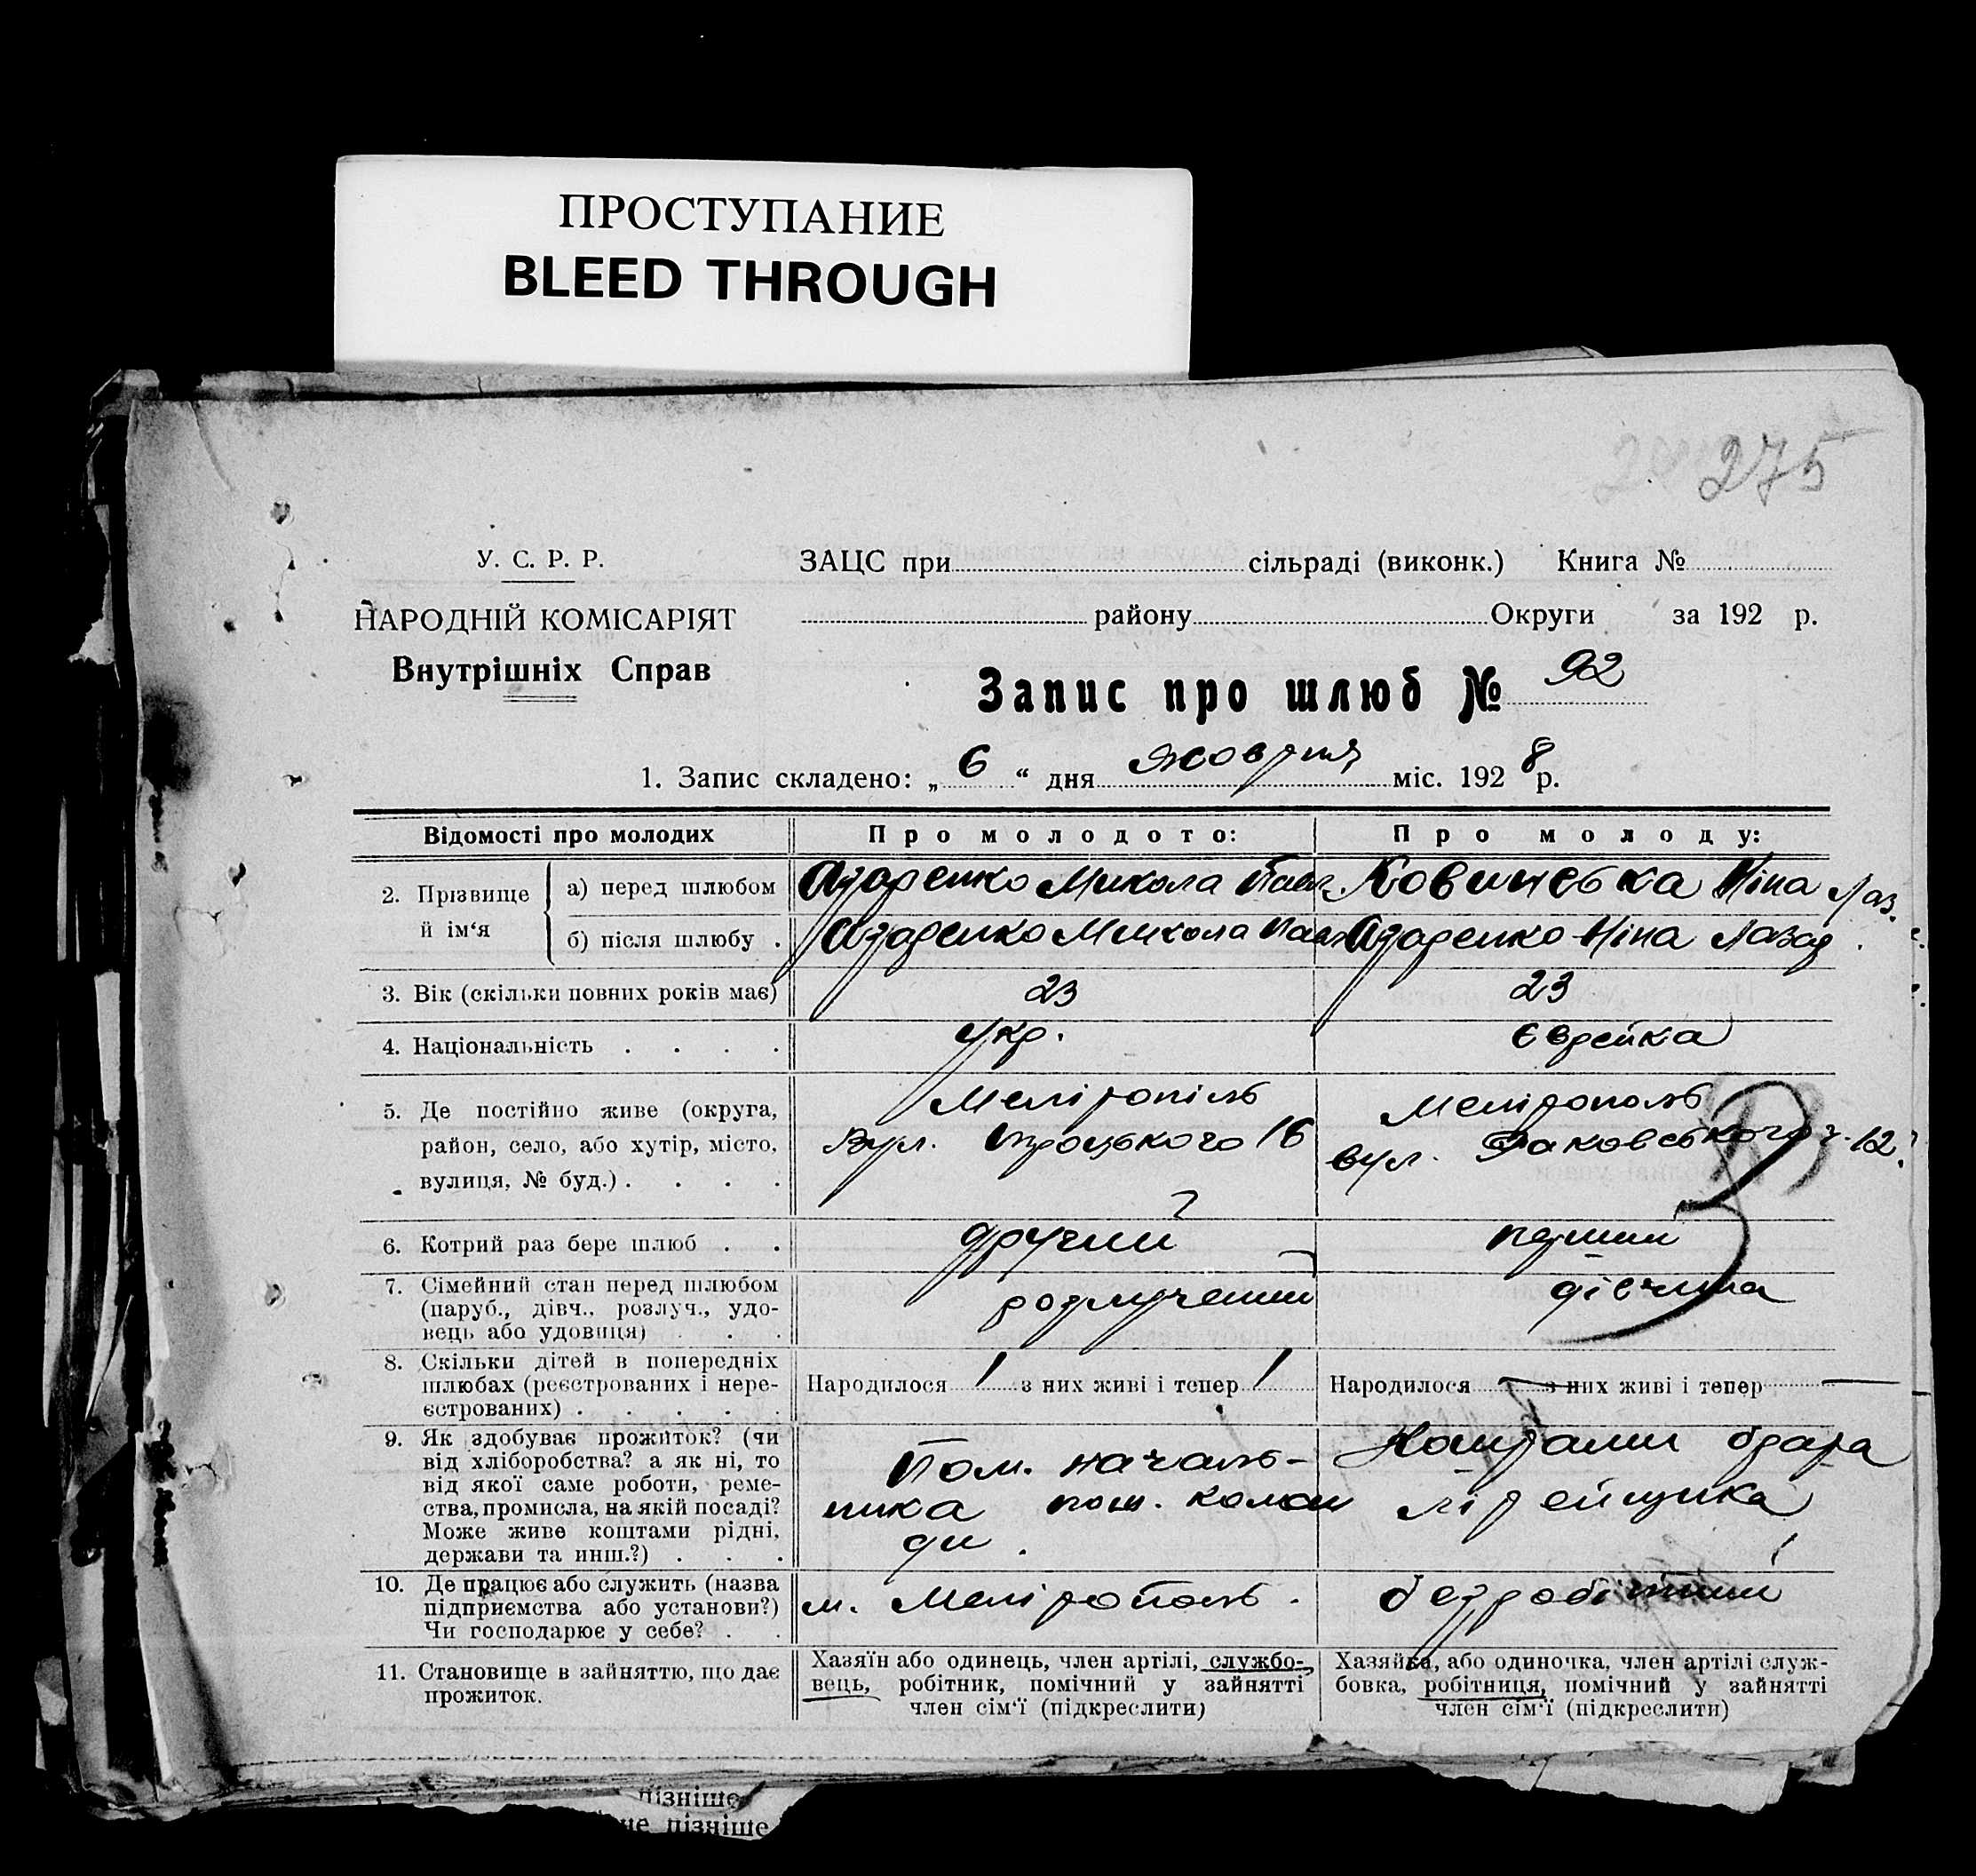 ПРОСТУПАНИЕ
BLEED THROUGH
275
У. С. Р. Р.
НАРОДНІЙ КОМІСАРІЯТ
Внутрішніх Справ
ЗАЦС при сільраді (виконк.) Книга №
району Округи за 192 р.
Запис про шлюб № 92
1. Запис складено: „ 6 “ дня жовтня міс. 1928 р.
Відомості про молодих
Про молодого:
Про молоду:
2. Прізвище й ім‘я
а) перед шлюбом
Азаренко Микола Павл.
Ковинєвька Ніна Лаз.
б) після шлюбу .
Азаренко Микола Павл
Азаренко Ніна Лазар
3. Вік (скільки повних років має)
23
23
4. Національність . . . .
Укр.
Єврейка
5. Де постійно живе (округа,
район, село, або хутір, місто,
вулиця, № буд.) . . . .
Мелітопіль
Вул. Троцького 16
Мелітополь
вул. Раковського ч. 12.
6. Котрий раз бере шлюб . .
другий
перший
7. Сімейний стан перед шлюбом
(паруб., дівч., розлуч., удо-
вець або удовиця) . . .
розлучений
дівчина
8. Скільки дітей в попередніх
шлюбах (реєстрованих і нере-
єстрованих) . . . . .
Народилося 1 з них живі і тепер 1
Народилося — з них живі і тепер —
9. Як здобуває прожиток? (чи
від хліборобства? а як ні, то
від якої саме роботи, реме-
ства, промисла, на якій посаді?
Може живе коштами рідні,
держави та инш.?) . . .
Пом. началь-
ника пож. коман
ди.
Коштами брата
10. Де працює або служить (назва
підприємства або установи?)
Чи господарює у себе? . .
м. Мелітополь.
безробітний
11. Становище в зайняттю, що дає
прожиток.
Хазяїн або одинець, член артілі, службо-
вець, робітник, помічний у зайнятті
член сім‘ї (підкреслити)
Хазяйка, або одиночка, член артілі служ-
бовка, робітниця, помічний у зайнятті
член сім‘ї (підкреслити)
пізніше
не пізніше